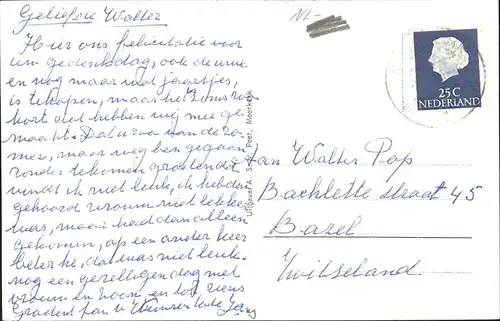 Geliefde Walter
Hier ons felicitatie voor
um gedenkdag, ook de uwe
en nog maar wat jaartjes,
is te hopen, maar het ons zo
kort wat hebben wij mee ge-
maakt. Dat u van de zo-
mer, maar weg ben gegaan
zonder te komen groeten dat
vindt ik niet leuk, ik heb da
gehoord vrouw niet lekker
was, maar had dan alleen
gekomen, op een ander keer
beter he, dat was niet leuk.
nog een gezelligen dag met
vrouw en zoon en tot ziens
Groeten van
NL-
25 C
NEDERLAND
Uitgave A. Peet, Meerkerk
Aan Walter Pop
Bachlette straat 45
Bazel
Zwitseland